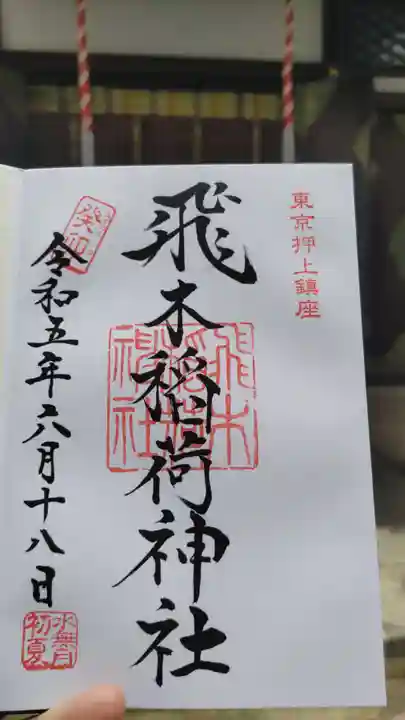 東京押上鎮座
飛木稲荷神社
飛木
稲荷
神社
癸卯
令和五年六月十八日
水無月
初夏